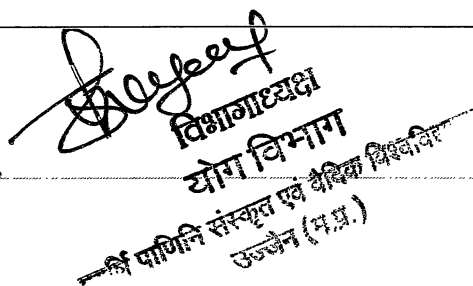 विभागाध्यक्ष
योग विभाग
पाणिनि संस्कृत एवं वैदिक
उज्जैन (म.प्र.)